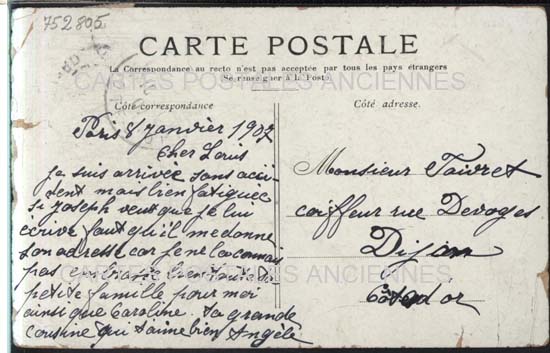 752805
CARTE POSTALE
La Correspondance au recto n'est pas acceptée par tous les pays étrangers
Se renseigner à la Poste
CARTES POSTALES ANCIENNES
Côté correspondance
Côté adresse.
Paris 8 janvier 1907
Cher Louis
je suis arrivée sans acci
dent mais bien fatiguée
si joseph veut que je lui
écrive faut qu'il me donne
son adresse car je ne la connais
pas embrasse bien toute ta
petite famille pour moi
ainsi que Caroline. ta grande
cousine qui t'aime bien Angèle
Monsieur Faivret
coiffeur rue Devoges
Dijon
Côte d'or
CARTES POSTALES ANCIENNES